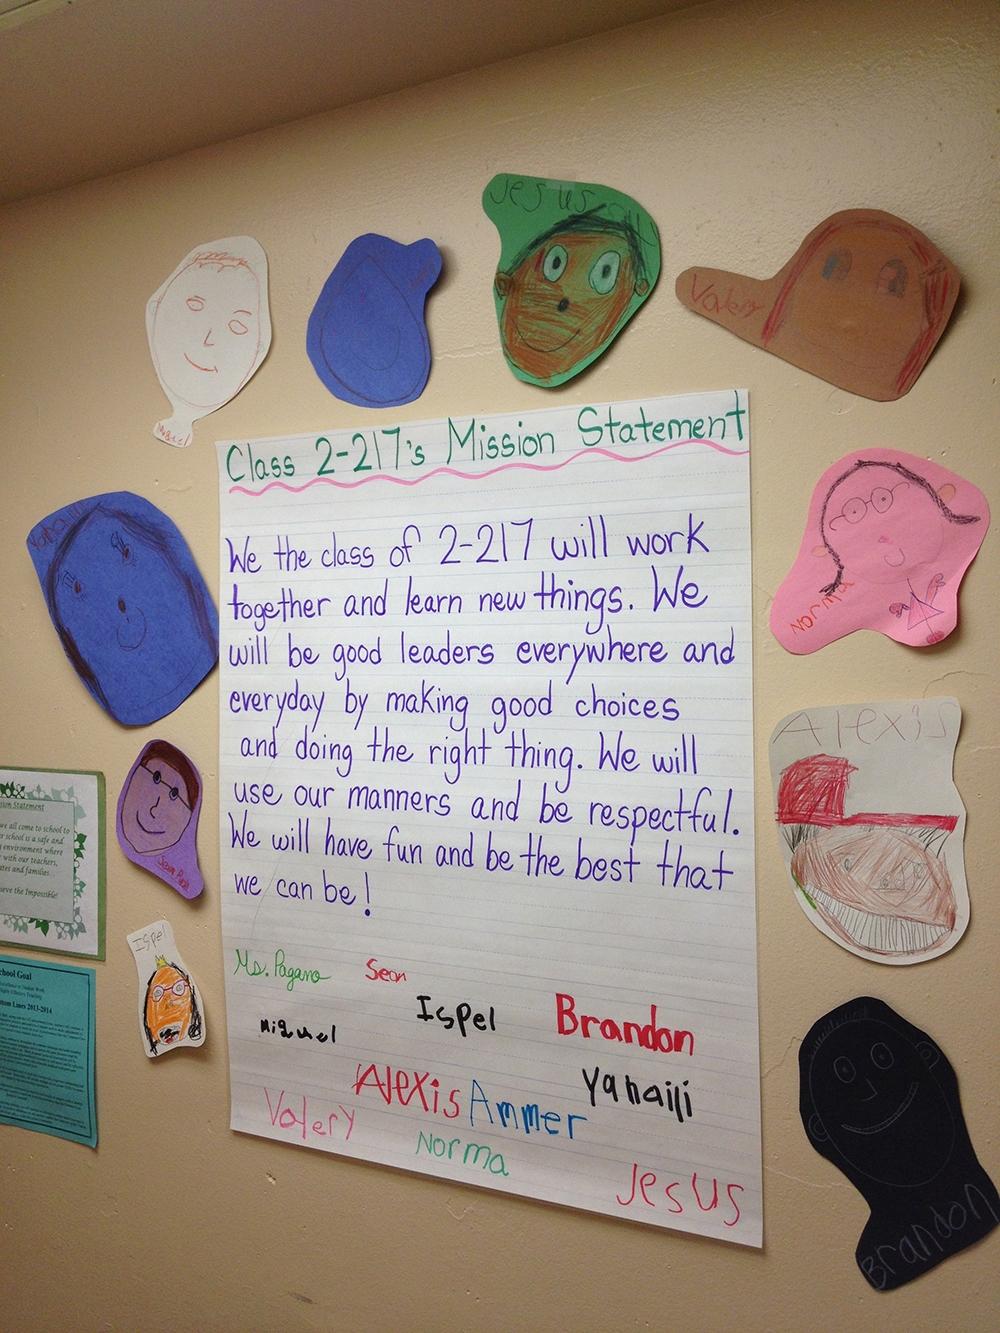 Jesus
Valery
Miguel
Class 2-217's Mission Statement
We the class of 2-217 will work
together and learn new things. We
will be good leaders everywhere and
everyday by making good choices
and doing the right thing. We will
use our manners and be respectful.
We will have fun and be the best that
we can be!
Ms. Pagano
Sean
Ispel
Brandon
Miguel
Yahaili
Alexis
Ammer
Valery
Norma
Jesus
Norma
Alexis
Brandon
Sean
Ispel
sion Statement
we all come to school to
r school is a safe and
environment where
with our teachers,
ates and families.
ieve the Impossible!
chool Goal
ttom Lines 2013-2014